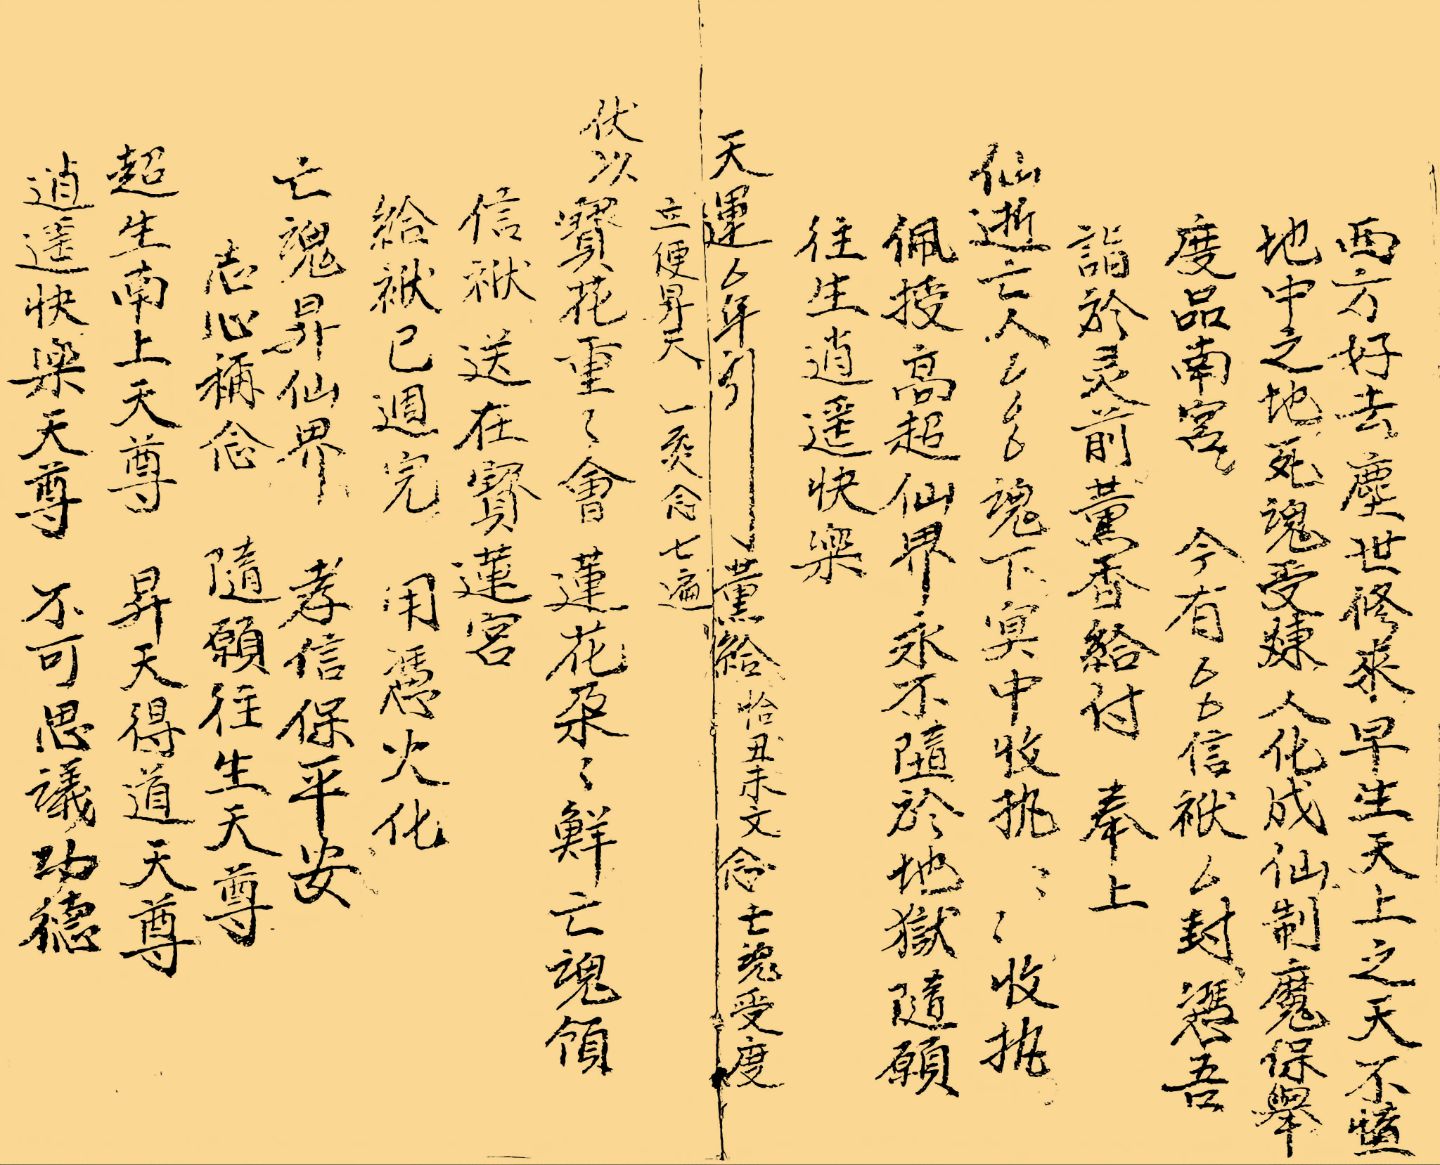 西方好去塵世修來早生天上之天不墮
地中之地死魂受煉人化成仙制魔保舉
度品南宮　今有厶厶信袱厶封憑吾
詣於灵前薰香給付　奉上
仙逝亡人厶厶厶魂下冥中收执〻〻收执
佩授高超仙界永不隨於地獄隨願
往生逍遥快樂
天運厶年引　薰給　恰丑未文念亡魂受度
立便昇天　一炁念七遍
伏以寶花重〻會蓮花朶〻鮮亡魂領
信袱送在寶蓮宮
給袱已週完　用憑火化
亡魂昇仙界　孝信保平安
志心稱念　隨願往生天尊
超生南上天尊　昇天得道天尊
逍遥快樂天尊　不可思議功德